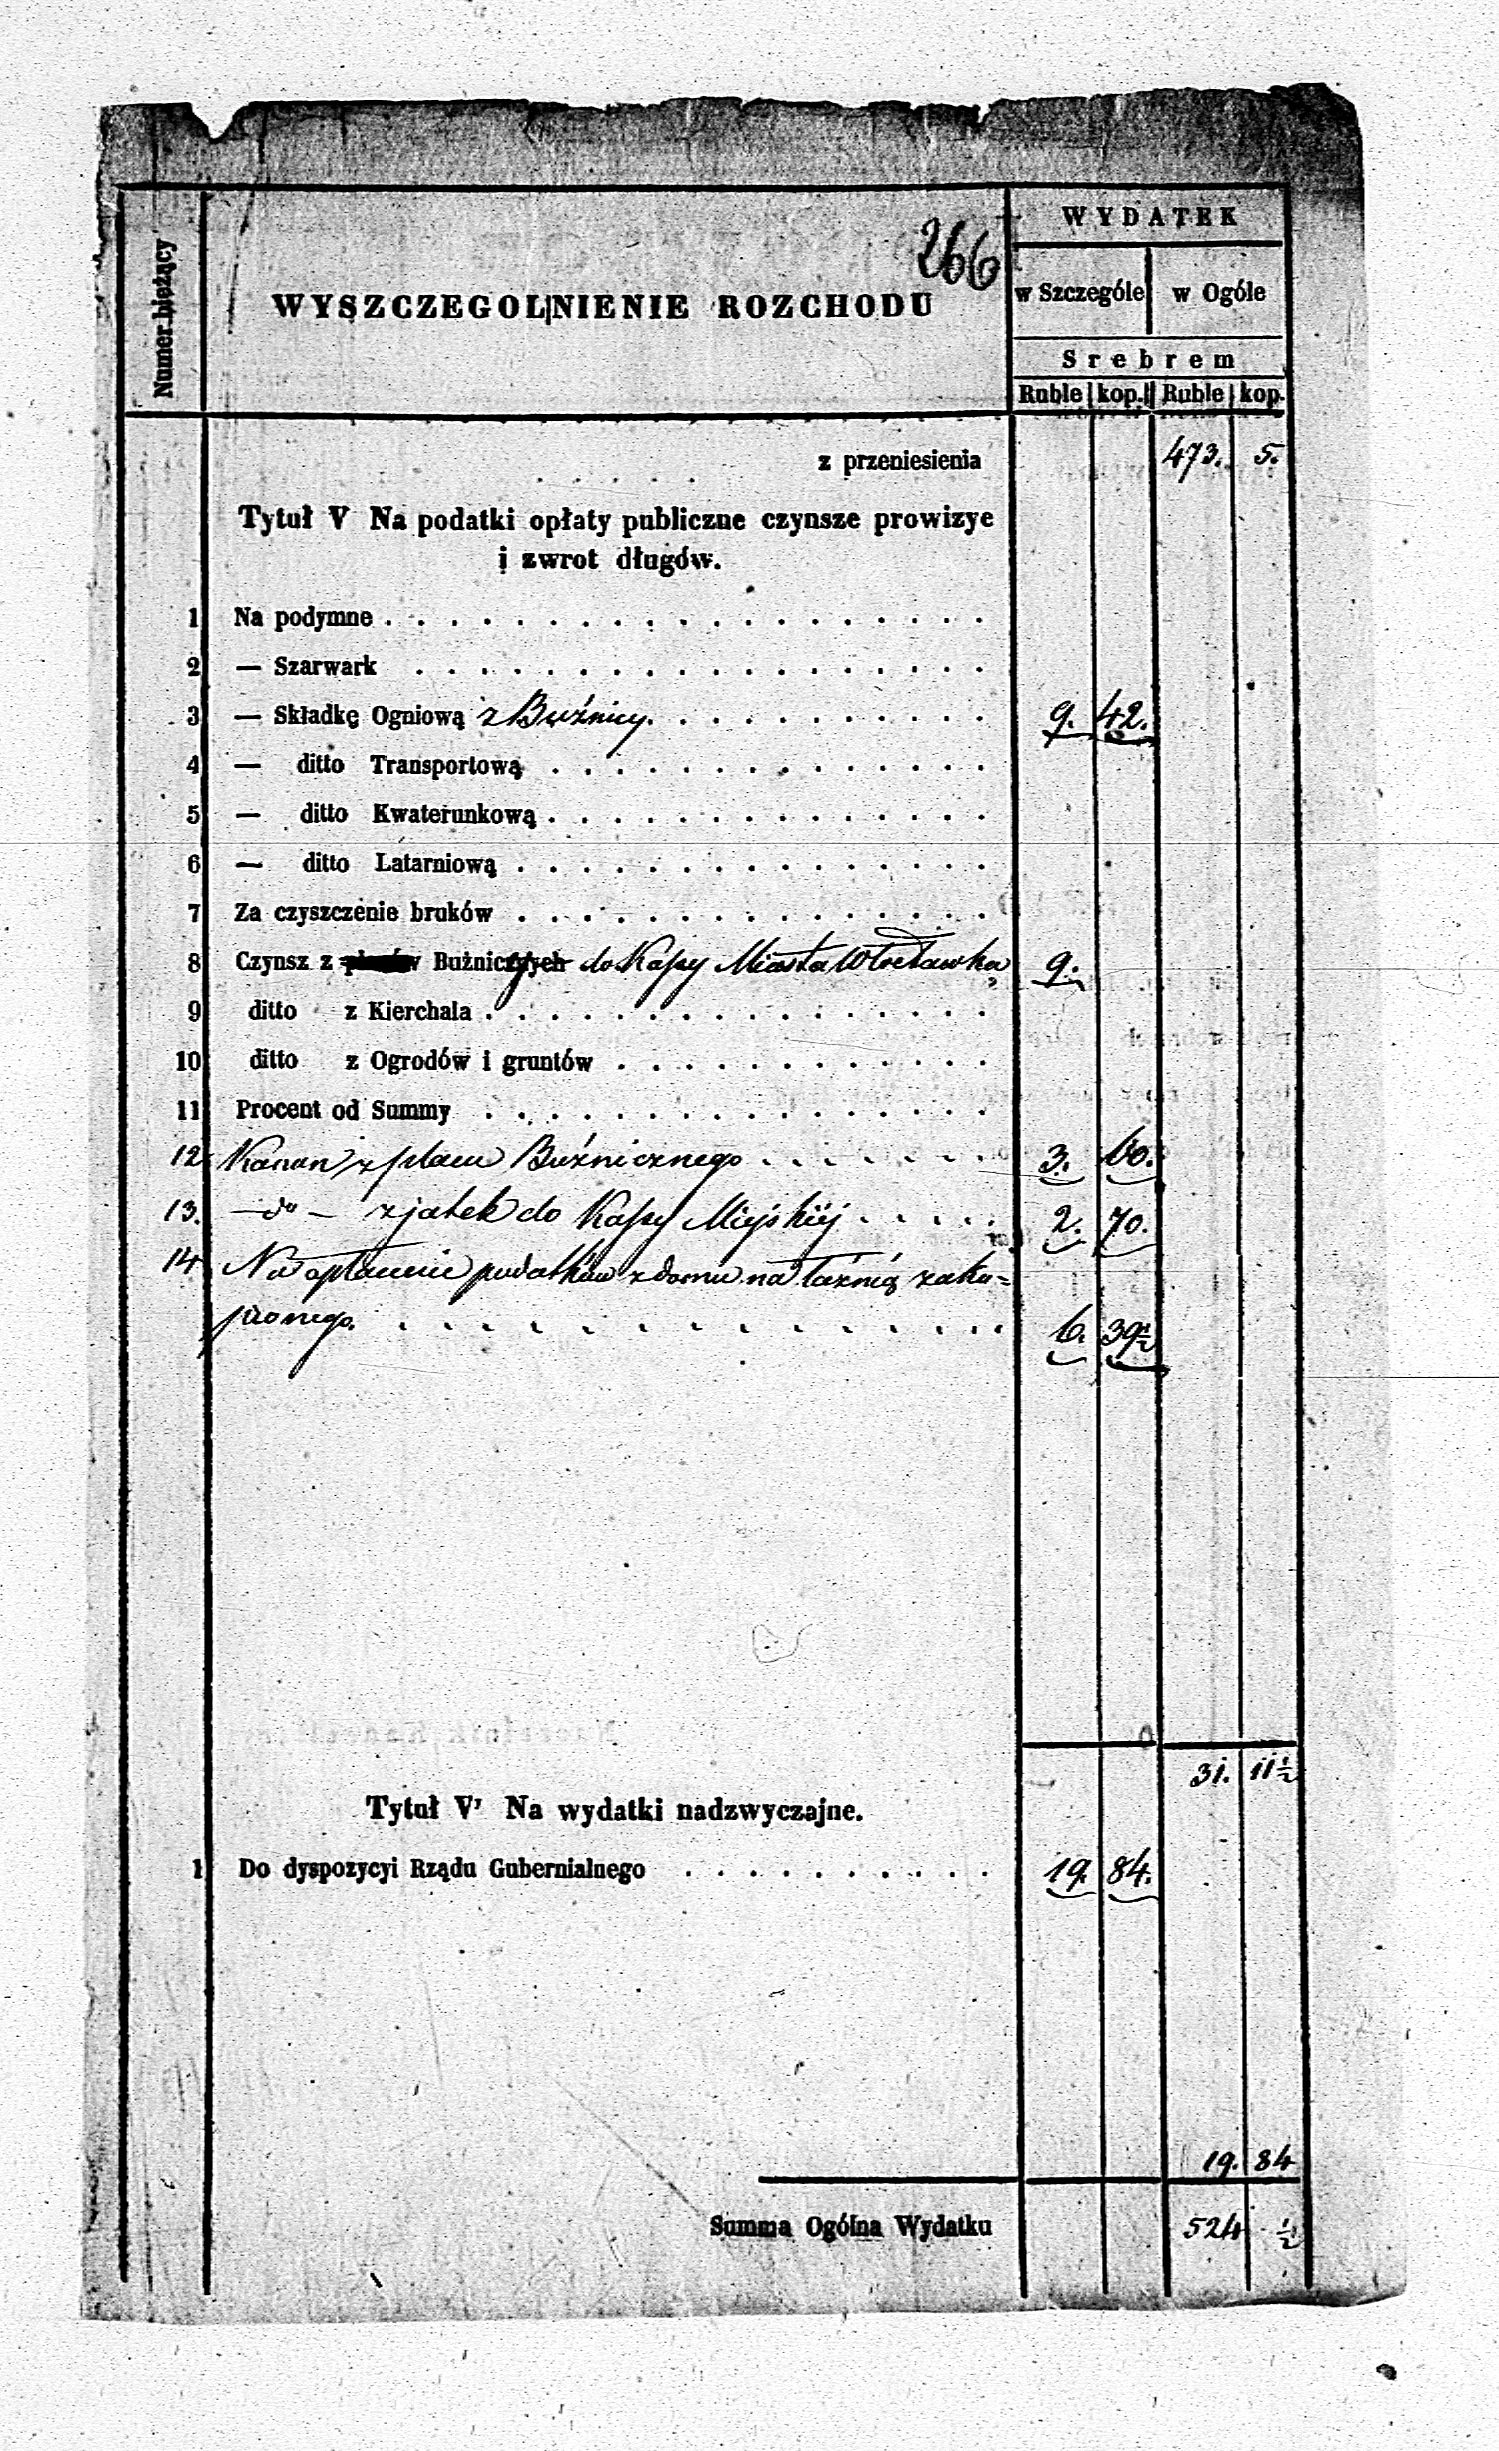 266
WYDATEK
Numer bieżący
WYSZCZEGOLNIENIE ROZCHODU
w Szczególe w Ogóle
Srebrem
Ruble kop. Ruble kop.
z przeniesienia 473. 5.
Tytuł V Na podatki opłaty publiczne czynsze prowizye
i zwrot długów.
1 Na podymne . . . . . . . . . . . . . . . . . . .
2 — Szarwark . . . . . . . . . . . . . . . . . .
3 — Składkę Ogniową z Buźnicy. . . . . . . . . . . 9. 42.
4 — ditto Transportową . . . . . . . . . . . . . .
5 — ditto Kwaterunkową . . . . . . . . . . . . . .
6 — ditto Latarniową . . . . . . . . . . . . . . .
7 Za czyszczenie bruków . . . . . . . . . . . . . . .
8 Czynsz z Bużniczych do Kassy Miasta Włocławka 9.
9 ditto z Kierchala . . . . . . . . . . . . . . . .
10 ditto z Ogrodów i gruntów . . . . . . . . . . . .
11 Procent od Summy . . . . . . . . . . . . . . . .
12 Kanon z placu Buźnicznego . . . . . . . 3. 60.
13. — do — z jatek do Kassy Miejskiéj . . . . . 2. 70.
14 Na opłacenie podatków z domu na łaźnią zaku=
pionego. . . . . . . . . . . . . . . 6. 39½
31. 11½
Tytuł VI Na wydatki nadzwyczajne.
1 Do dyspozycyi Rządu Gubernialnego . . . . . . . . . . 19. 84.
19. 84
Summa Ogólna Wydatku 524 ½